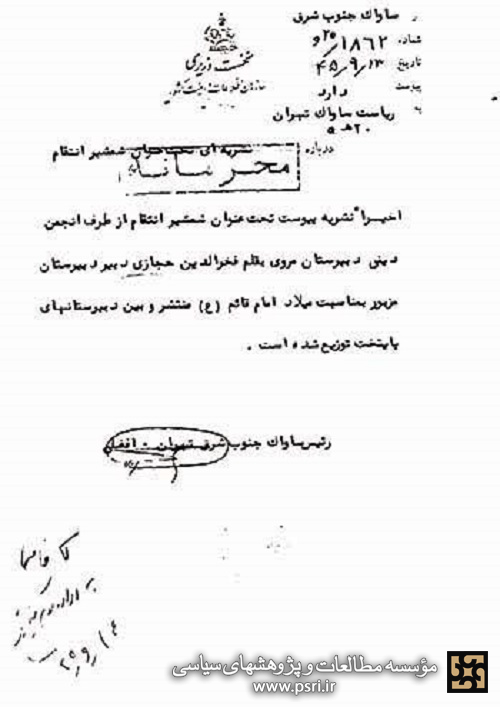 از ساواک جنوب شرق
نخست وزیری
سازمان اطلاعات و امنیت کشور
شماره ۱۸۶۲/
تاریخ ۴۵/۹/۱۳
پیوست دارد
به ریاست ساواک تهران
۲۰ هـ ۵
درباره نشریه ای تحت عنوان شمشیر انتقام
محرمانه
اخیراً نشریه پیوست تحت عنوان شمشیر انتقام از طرف انجمن
دینی دبیرستان مروی بقلم فخرالدین حجازی دبیر دبیرستان
مزبور بمناسبت میلاد امام قائم (ع) منتشر و بین دبیرستانهای
پایتخت توزیع شده است .
رئیس ساواک جنوب شرق تهران - افضلی
مؤسسه مطالعات و پژوهشهای سیاسی
www.psri.ir